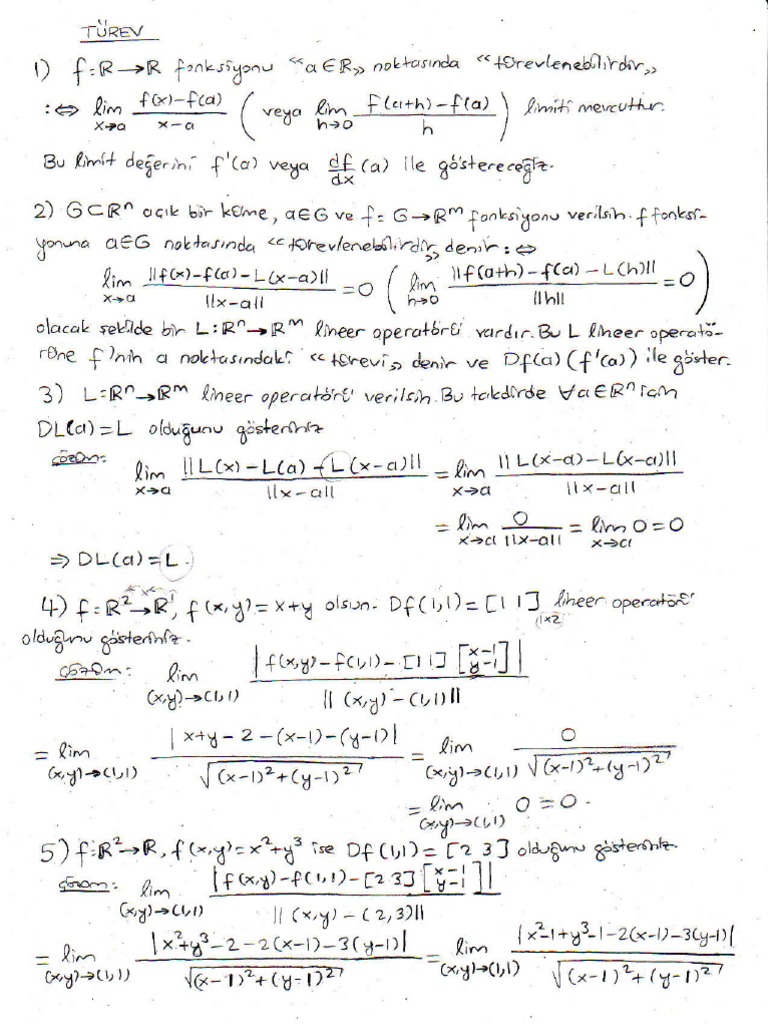 TÜREV
1) f:R→R fonksiyonu "a∈R" noktasında "türevlenebilirdir"
:⇔ lim_{x→a} (f(x)-f(a))/(x-a) (veya lim_{h→0} (f(a+h)-f(a))/h) limiti mevcuttur.
Bu limit değerini f'(a) veya df/dx (a) ile göstereceğiz.
2) G⊂Rⁿ açık bir küme, a∈G ve f:G→Rᵐ fonksiyonu verilsin. f fonksi-
yonuna a∈G noktasında "türevlenebilirdir" denir :⇔
lim_{x→a} ||f(x)-f(a)-L(x-a)||/||x-a|| = 0 (lim_{h→0} ||f(a+h)-f(a)-L(h)||/||h|| = 0)
olacak şekilde bir L:Rⁿ→Rᵐ lineer operatörü vardır. Bu L lineer operatö-
rüne f'nin a noktasındaki "türevi" denir ve Df(a) (f'(a)) ile göster.
3) L:Rⁿ→Rᵐ lineer operatörü verilsin. Bu takdirde ∀a∈Rⁿ için
DL(a)=L olduğunu gösteriniz
çözüm: lim_{x→a} ||L(x)-L(a)-L(x-a)||/||x-a|| = lim_{x→a} ||L(x-a)-L(x-a)||/||x-a||
= lim_{x→a} 0/||x-a|| = lim_{x→a} 0 = 0
⇒ DL(a)=L.
4) f:R²→R¹, f(x,y)=x+y olsun. Df(1,1)=[1 1]_{1x2} lineer operatörü
olduğunu gösteriniz.
çözüm: lim_{(x,y)→(1,1)} |f(x,y)-f(1,1)-[1 1][x-1 y-1]|/||(x,y)-(1,1)||
= lim_{(x,y)→(1,1)} |x+y-2-(x-1)-(y-1)|/√((x-1)²+(y-1)²) = lim_{(x,y)→(1,1)} 0/√((x-1)²+(y-1)²)
= lim_{(x,y)→(1,1)} 0 = 0.
5) f:R²→R, f(x,y)=x²+y³ ise Df(1,1)=[2 3] olduğunu gösteriniz.
çözüm: lim_{(x,y)→(1,1)} |f(x,y)-f(1,1)-[2 3][x-1 y-1]|/||(x,y)-(2,3)||
= lim_{(x,y)→(1,1)} |x²+y³-2-2(x-1)-3(y-1)|/√((x-1)²+(y-1)²) = lim_{(x,y)→(1,1)} |x²-1+y³-1-2(x-1)-3(y-1)|/√((x-1)²+(y-1)²)